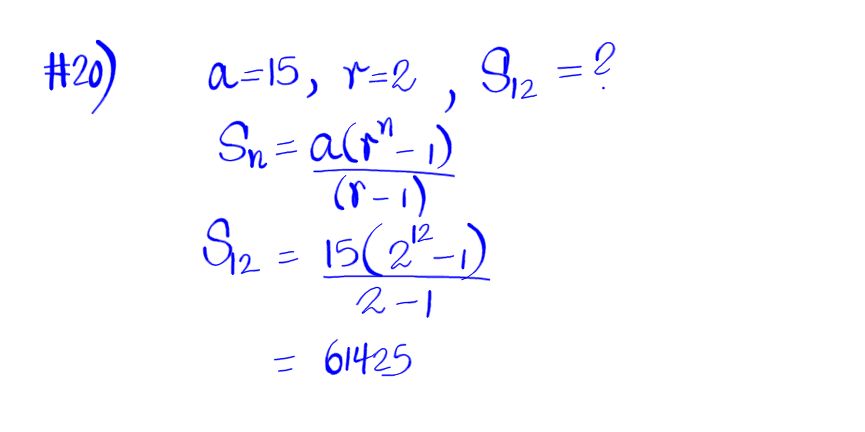 #20) a=15, r=2, S₁₂ = ?
Sₙ = a(rⁿ - 1)/(r - 1)
S₁₂ = 15(2¹² - 1)/2 - 1
= 61425